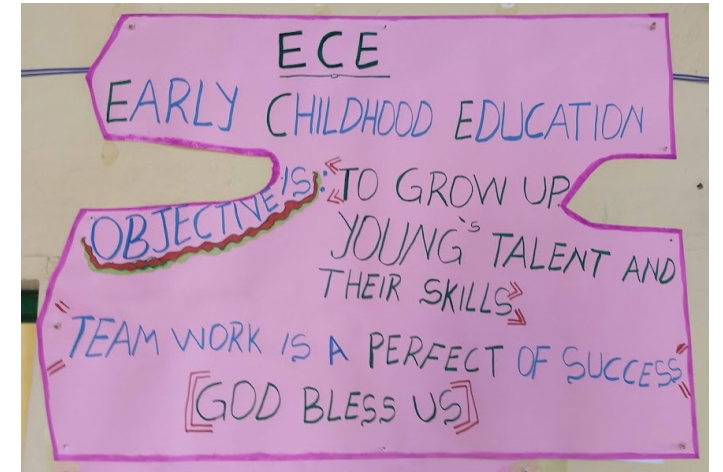 ECE
EARLY CHILDHOOD EDUCATION
OBJECTIVE IS: "TO GROW UP
YOUNG'S TALENT AND
THEIR SKILLS"
"TEAM WORK IS A PERFECT OF SUCCESS"
[GOD BLESS US]